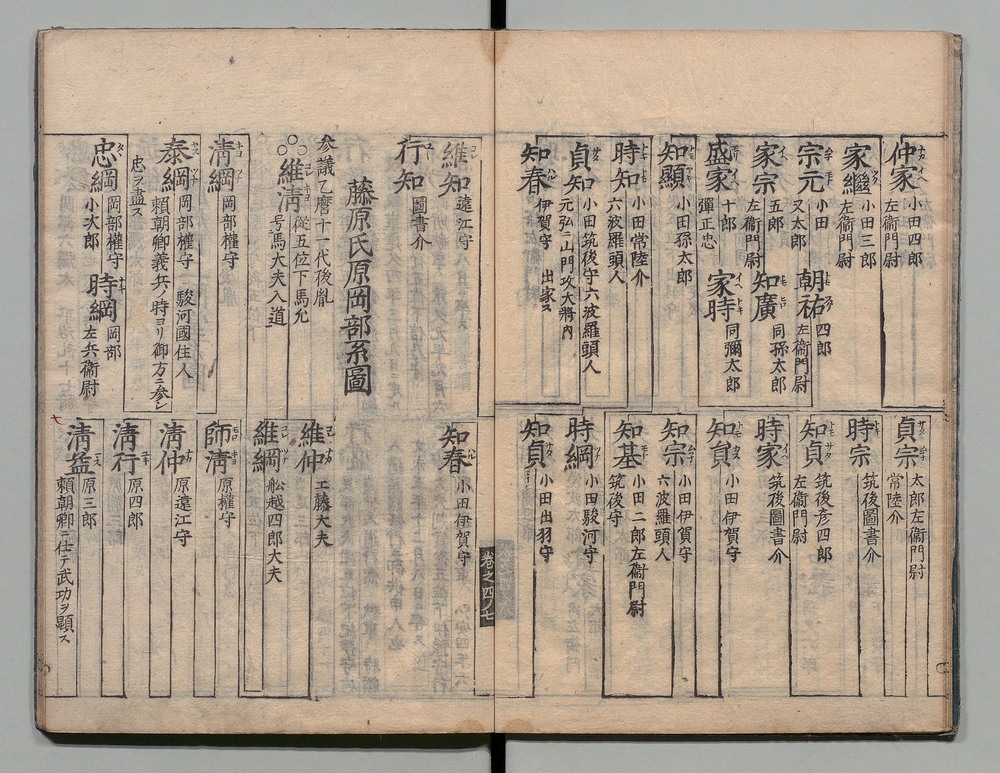 仲家 小田四郎 左衞門尉
家繼 小田三郎 左衞門尉
宗元 小田 又太郎
朝祐 四郎 左衞門尉
家宗 五郎 左衞門尉
知廣 同孫太郎
盛家 十郎 彈正忠
家時 同彌太郎
知顯 小田孫太郎
時知 小田常陸介 六波羅頭人
貞知 小田筑後守六波羅頭人 元弘ニ山門攻大將內
知春 伊賀守 出家ス
貞宗 太郎左衞門尉 常陸介
時宗 筑後圖書介
知貞 筑後彦四郎 左衞門尉
時家 筑後圖書介
知貞 小田伊賀守
知宗 小田伊賀守 六波羅頭人
知基 小田二郎左衞門尉 筑後守
時綱 小田駿河守
知貞 小田出羽守
卷之四ノ七
維知 遠江守
行知 圖書介
藤原氏原岡部系圖
参議乙麿十一代後胤
維淸 從五位下馬允 号馬大夫入道
淸綱 岡部權守
泰綱 岡部權守 駿河國住人 賴朝卿義兵ノ時ヨリ御方ニ參シ
忠ヲ盡ス
忠綱 岡部權守 小次郎
時綱 岡部 左兵衞尉
知春 小田伊賀守
維仲 工藤大夫
維綱 船越四郎大夫
師淸 原權守
淸仲 原遠江守
淸行 原四郎
淸益 原三郎 賴朝卿ニ仕テ武功ヲ顯ス